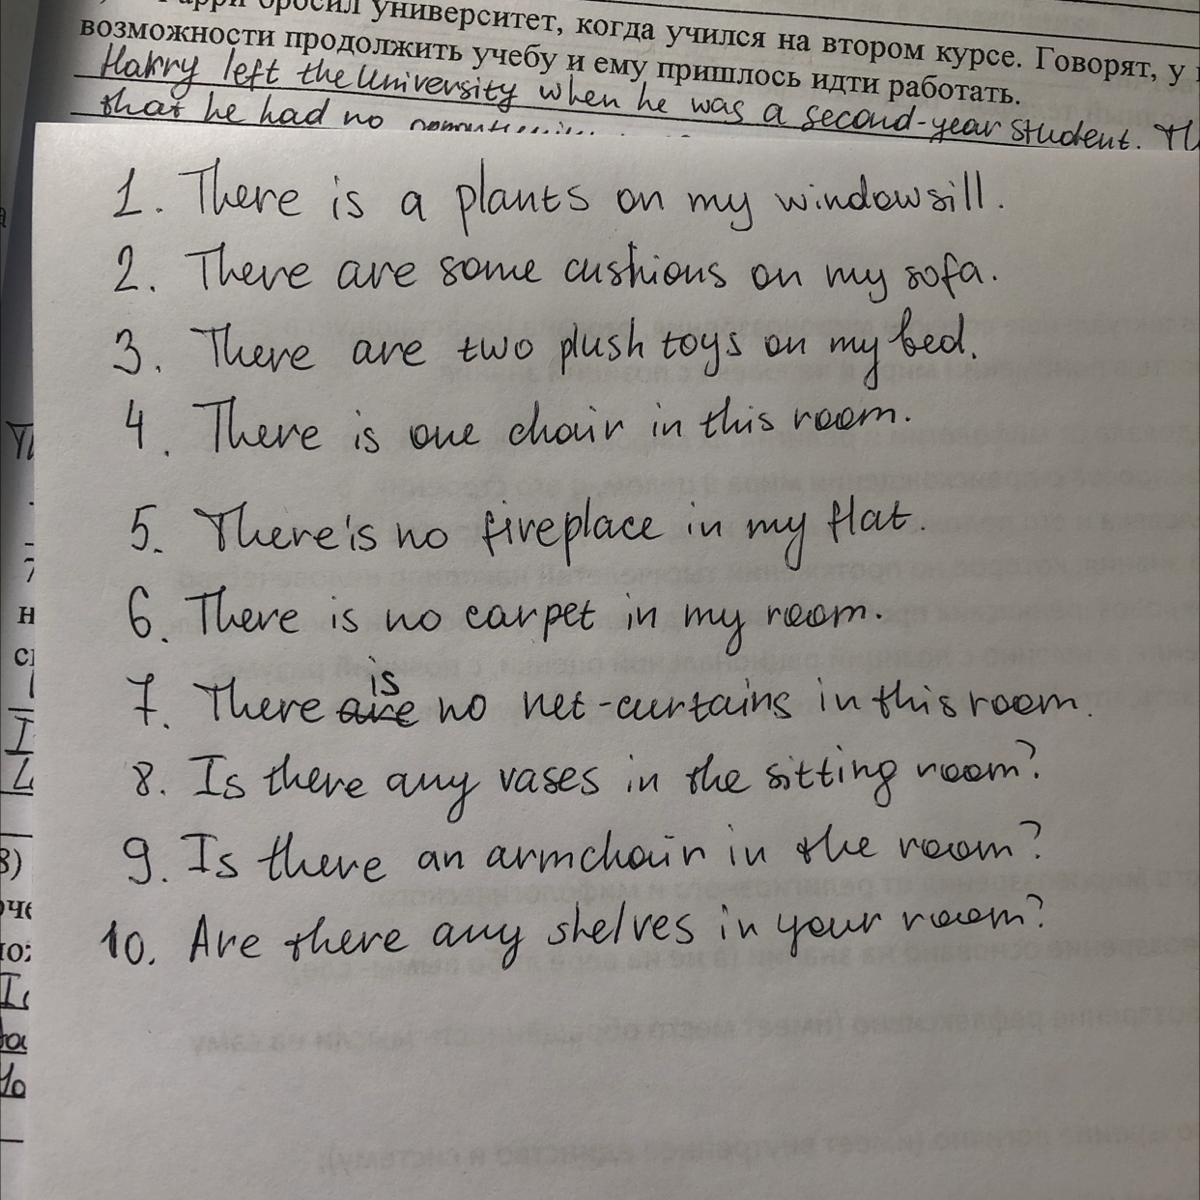 Гарри бросил университет, когда учился на втором курсе. Говорят, у
возможности продолжить учебу и ему пришлось идти работать.
Harry left the University when he was a second-year student.
that he had no
1. There is a plants on my windowsill.
2. There are some cushions on my sofa.
3. There are two plush toys on my bed.
4. There is one chair in this room.
5. There's no fireplace in my flat.
6. There is no carpet in my room.
is
7. There are no net-curtains in this room.
8. Is there any vases in the sitting room?
9. Is there an armchair in the room?
10. Are there any shelves in your room?